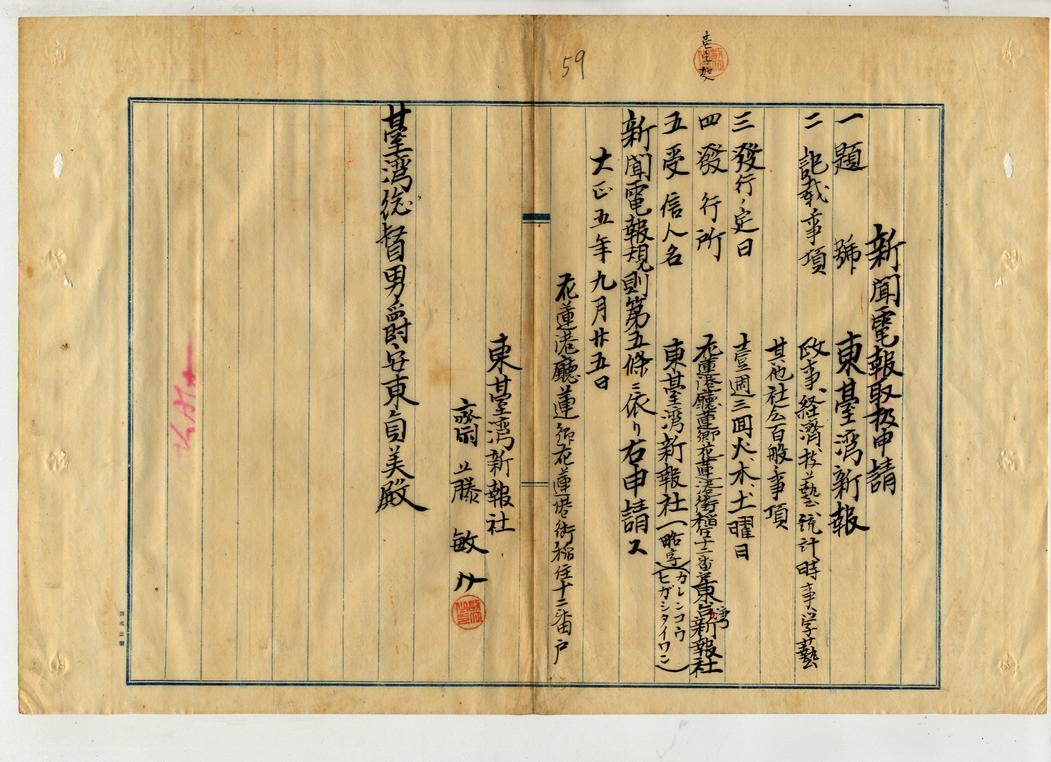 59
壱字加
新聞電報取扱申請
一 題號 東臺湾新報
二 記載事項 政事、経濟、技藝、統計時事学藝
其他社会百般ノ事項
三 發行ノ定日 壹週三回火、木、土曜日
四 發行所 花蓮港廳蓮鄉花蓮港街稲住十二番戸東台湾新報社
五 受信人名 東臺湾新報社(略字)(カレンコウ ヒガシタイワン)
新聞電報規則第五條ニ依リ右申請ス
大正五年九月廿五日
花蓮港廳蓮鄉花蓮港街稲住十二番戸
東臺湾新報社
齋藤
臺湾総督男爵安東貞美殿